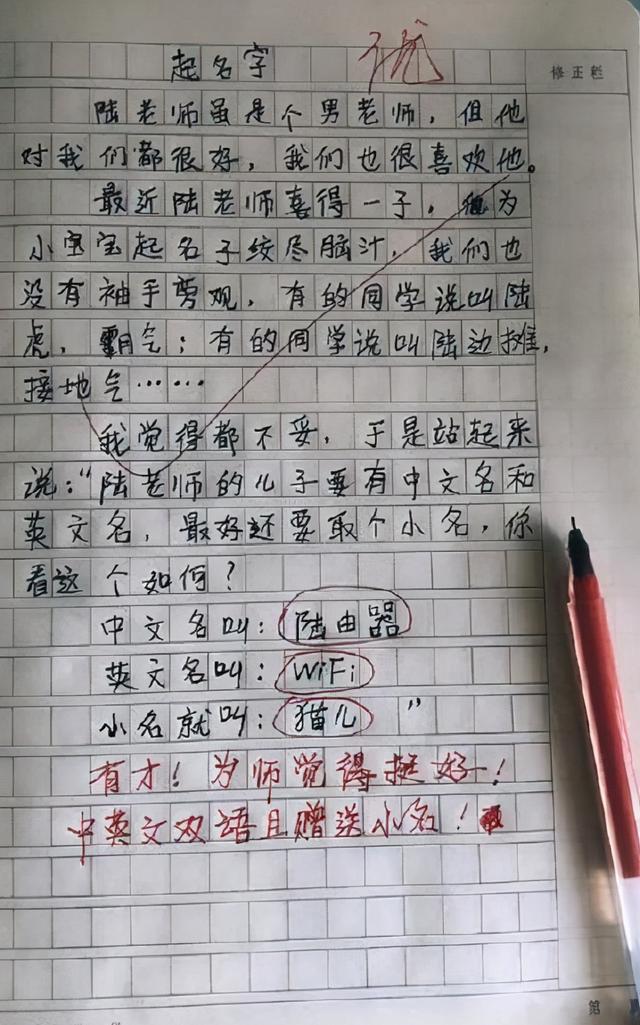 起名字
优
修正栏
陆老师虽是个男老师，但他
对我们都很好，我们也很喜欢他。
最近陆老师喜得一子，他为
小宝宝起名子绞尽脑汁，我们也
没有袖手旁观，有的同学说叫陆
虎，霸气；有的同学说叫陆边摊，
接地气……
我觉得都不妥，于是站起来
说：“陆老师的儿子要有中文名和
英文名，最好还要取个小名，你
看这个如何？
中文名叫：陆由器
英文名叫：WiFi
小名就叫：猫儿”
有才！为师觉得挺好！
中英文双语且赠送小名！
第